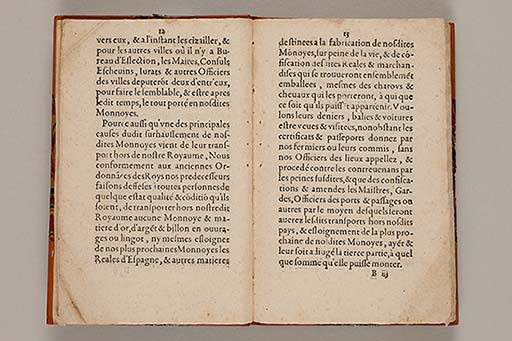 12
vers eux, & a l'instant les cizailler, &
pour les autres villes où il n'y a Bu-
reau d'Eslection, les Maires, Consuls
Eschevins, Iurats & autres Officiers
des villes deputerõt deux d'entr'eux,
pour faire le semblable, & estre apres
ledit temps, le tout porté en nosdites
Monnoyes.
Pource aussi qu'vne des principales
causes dudit surhaussement de nos-
dites Monnoyes vient de leur trans-
port hors de nostre Royaume, Nous
conformement aux anciennes Or-
donnãces des Roys nos predecesseurs
faisons deffẽses à toutes personnes de
quelque estat qualité & cõditiõ qu'ils
soient, de transporter hors nostredit
Royaume aucune Monnoye & ma-
tiere d'or, d'argẽt & billon en ouura-
ges ou lingot, ny mesmes esloigner
de nos plus prochaines Monnoyes les
Reales d'Espagne, & autres matieres
13
destinees a la fabrication de nosdites
Monoyes, sur peine de la vie, & de cõ-
fiscation desdites Reales & marchan-
dises qui se trouueront ensemblemẽt
emballees, mesmes des charoys &
cheuaux qui les porteront, à qui que
ce soit qu'ils puissẽt appartenir. Vou-
lons leurs deniers, balles & voitures
estre veues & visitees, nonobstant les
certificats & passeports donnez par
nos fermiers ou leurs commis, sans
nos Officiers des lieux appellez, &
procedé contre les contreuenans par
les peines susdites, & que des confisca-
tions & amendes les Maistres, Gar-
des, Officiers des ports & passages ou
autres par le moyen desquels seront
auerez lesdits transports hors nosdits
pays, & esloignement de la plus pro-
chaine de nosdites Monoyes, ayẽt &
leur soit adiugé la tierce partie, à quel
que somme qu'elle puisse monter.
B iij